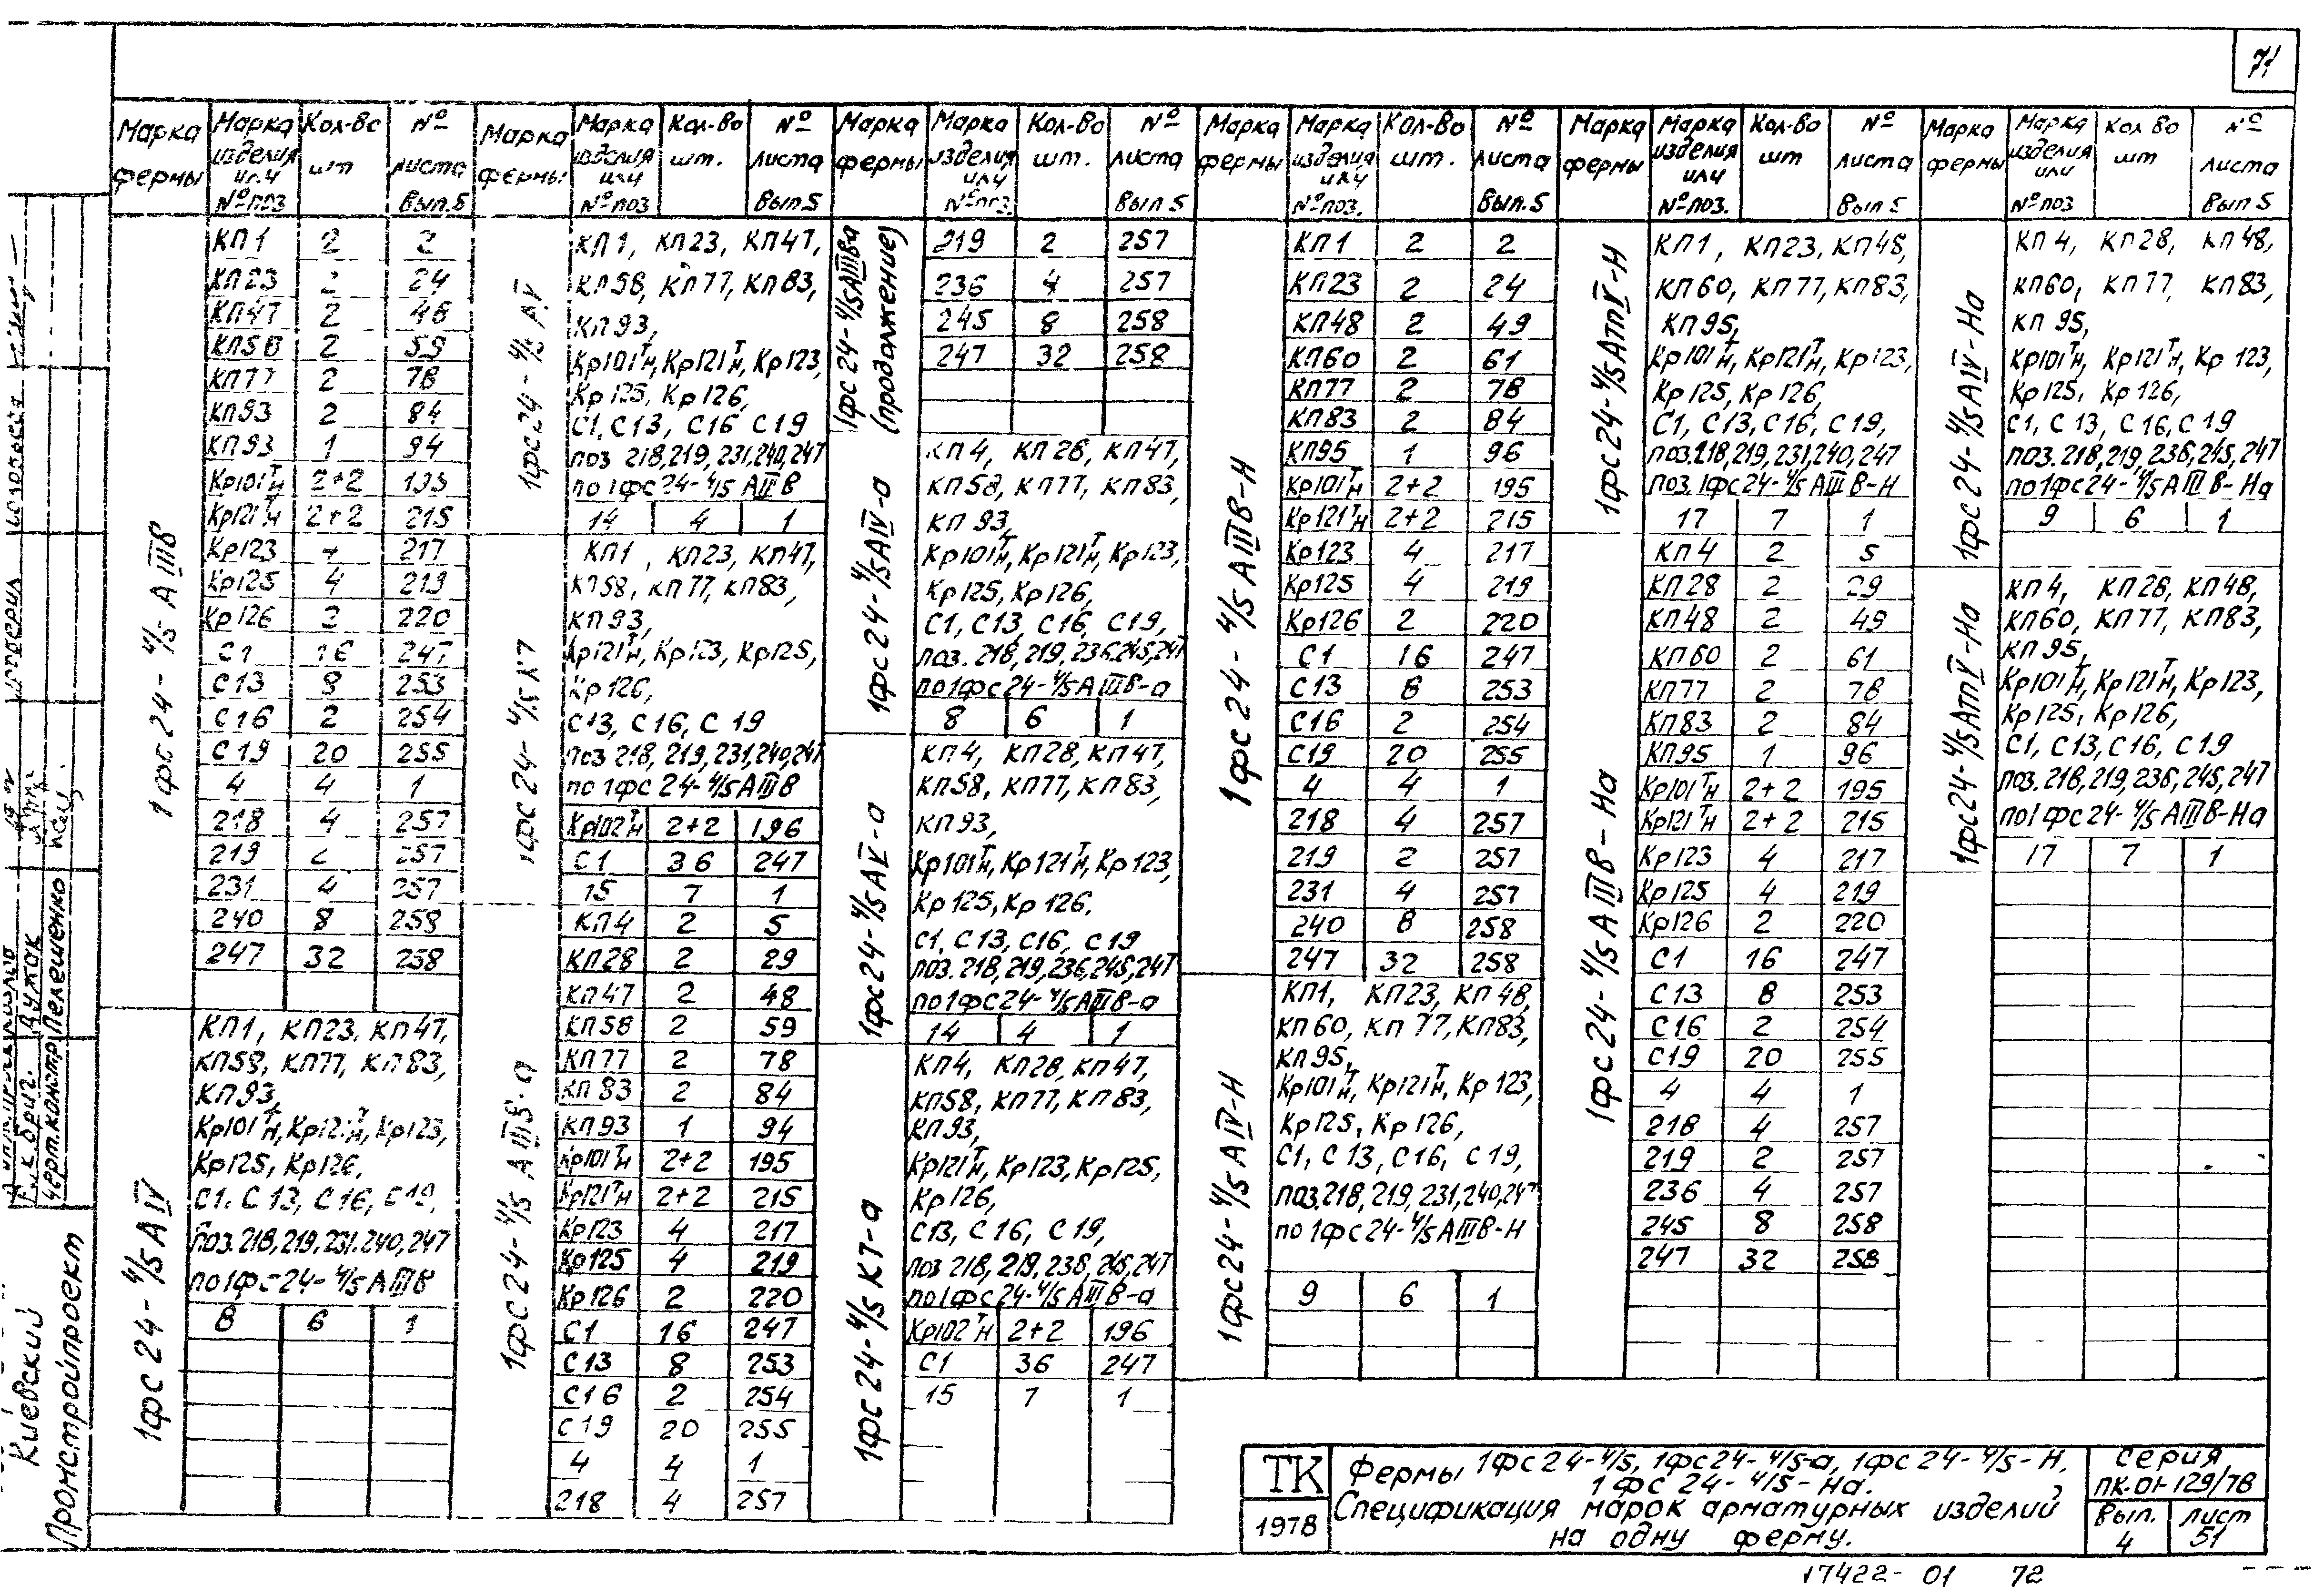 71
Марка фермы | Марка изделия или № поз | Кол-во шт | № листа Вып.5
1фс24-4/5 АIIIв
КП1 2 2
КП23 2 24
КП47 2 48
КП58 2 59
КП77 2 78
КП93 2 84
КП93 1 94
Кр101тн 2+2 195
Кр121тн 2+2 215
Кр123 4 217
Кр125 4 219
Кр126 2 220
С1 16 247
С13 8 253
С16 2 254
С19 20 255
4 4 1
218 4 257
219 2 257
231 4 257
240 8 258
247 32 258
1фс24-4/5 АIV
КП1, КП23, КП47,
КП58, КП77, КП83,
КП93,
Кр101тн, Кр121тн, Кр123,
Кр125, Кр126,
С1, С13, С16, С19,
поз.218,219,231,240,247
по 1фс-24-4/5 АIIIв
8 6 1
Марка фермы | Марка изделия или № поз | Кол-во шт. | № листа Вып.5
1фс24-4/5 АV
КП1, КП23, КП47,
КП58, КП77, КП83,
КП93,
Кр101тн, Кр121тн, Кр123,
Кр125, Кр126,
С1, С13, С16 С19
поз 218,219,231,240,247
по 1фс24-4/5 АIIIв
14 4 1
1фс24-4/5 К7
КП1, КП23, КП47,
КП58, КП77, КП83,
КП93,
Кр121тн, Кр123, Кр125,
Кр126,
С13, С16, С19
поз 218, 219, 231,240,247
по 1фс24-4/5АIIIв
Кр102тн 2+2 196
С1 36 247
15 7 1
1фс24-4/5 АIIIв-а
КП4 2 5
КП28 2 29
КП47 2 48
КП58 2 59
КП77 2 78
КП83 2 84
КП93 1 94
Кр101тн 2+2 195
Кр121тн 2+2 215
Кр123 4 217
Кр125 4 219
Кр126 2 220
С1 16 247
С13 8 253
С16 2 254
С19 20 255
4 4 1
218 4 257
Марка фермы | Марка изделия или № поз. | Кол-во шт. | № листа Вып 5
1фс24-4/5АIIIва (продолжение)
219 2 257
236 4 257
245 8 258
247 32 258
1фс24-4/5АIV-а
КП4, КП28, КП47,
КП58, КП77, КП83,
КП93,
Кр101тн, Кр121тн, Кр123,
Кр125, Кр126,
С1, С13, С16, С19,
поз.218,219,236,245,247
по 1фс24-4/5АIIIв-а
8 6 1
1фс24-4/5АV-а
КП4, КП28, КП47,
КП58, КП77, КП83,
КП93,
Кр101тн, Кр121тн, Кр123,
Кр125, Кр126.
С1, С13, С16, С19
поз.218,219,236,245,247
по 1фс24-4/5АIIIв-а
14 4 1
1фс24-4/5 К7-а
КП4, КП28, КП47,
КП58, КП77, КП83,
КП93,
Кр121тн, Кр123, Кр125,
Кр126,
С13, С16, С19,
поз 218, 219, 236, 245,247
по 1фс24-4/5 АIIIв-а
Кр102тн 2+2 196
С1 36 247
15 7 1
Марка фермы | Марка изделия или № поз. | Кол-во шт. | № листа Вып.5
1фс24-4/5 АIIIВ-Н
КП1 2 2
КП23 2 24
КП48 2 49
КП60 2 61
КП77 2 78
КП83 2 84
КП95 1 96
Кр101тн 2+2 195
Кр121тн 2+2 215
Кр123 4 217
Кр125 4 219
Кр126 2 220
С1 16 247
С13 8 253
С16 2 254
С19 20 255
4 4 1
218 4 257
219 2 257
231 4 257
240 8 258
247 32 258
1фс24-4/5 АIV-Н
КП1, КП23, КП48,
КП60, КП77, КП83,
КП95,
Кр101тн, Кр121тн, Кр123,
Кр125, Кр126,
С1, С13, С16, С19,
поз.218, 219, 231,240,247
по 1фс24-4/5АIIIВ-Н
9 6 1
Марка фермы | Марка изделия или № поз. | Кол-во шт | № листа Вып 5
1фс24-4/5АтV-Н
КП1, КП23, КП48,
КП60, КП77, КП83,
КП95,
Кр101тн, Кр121тн, Кр123,
Кр125, Кр126,
С1, С13, С16, С19,
поз.218,219,231,240,247
поз.1фс24-4/5АIIIВ-Н
17 7 1
1фс24-4/5 АIIIВ-На
КП4 2 5
КП28 2 29
КП48 2 49
КП60 2 61
КП77 2 78
КП83 2 84
КП95 1 96
Кр101тн 2+2 195
Кр121тн 2+2 215
Кр123 4 217
Кр125 4 219
Кр126 2 220
С1 16 247
С13 8 253
С16 2 254
С19 20 255
4 4 1
218 4 257
219 2 257
236 4 257
245 8 258
247 32 258
Марка фермы | Марка изделия или № поз | Кол во шт | № листа Вып 5
1фс24-4/5АIV-На
КП4, КП28, КП48,
КП60, КП77, КП83,
КП95,
Кр101тн, Кр121тн, Кр123,
Кр125, Кр126,
С1, С13, С16, С19
поз.218,219,236,245,247
по 1фс24-4/5АIIIВ-На
9 6 1
1фс24-4/5АтV-На
КП4, КП28, КП48,
КП60, КП77, КП83,
КП95,
Кр101тн, Кр121тн, Кр123,
Кр125, Кр126,
С1, С13, С16, С19
поз.218,219,236,245,247
по 1фс24-4/5АIIIВ-На
17 7 1
Киевский
Промстройпроект
Рук.бриг. Лужак
Черт.констр Пелешенко
Проверил
ТК
1978
Фермы 1фс24-4/5, 1фс24-4/5-а, 1фс24-4/5-Н,
1фс 24-4/5-На.
Спецификация марок арматурных изделий
на одну ферму.
Серия
ПК-01-129/78
Вып. 4
Лист 51
17422-01 72